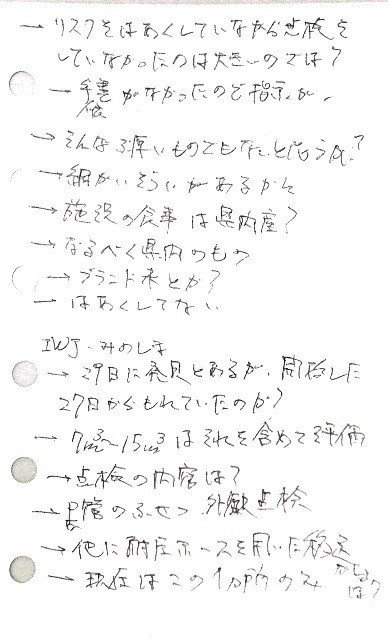 → リスクをはあくしていながら点検を
していなかったのは大きいのでは?
→ 手書きがなかったので指示が、
→ そんな厚いものでもないと思うが?
→ 細かいそういがあるかも
→ 施設の食事は県内産?
→ なるべく県内のもの
→ ブランド米とか?
→ はあくしてない
IWJ・みのしま
→ 29日に発見とあるが、開始した
27日からもれていたのか?
→ 7m³~15m³はそれを含めて評価
→ 点検の内容は?
→ PE管のふせつ 外観点検
→ 他に耐圧ホースを用いた移送
→ 現在はこの1カ所のみ